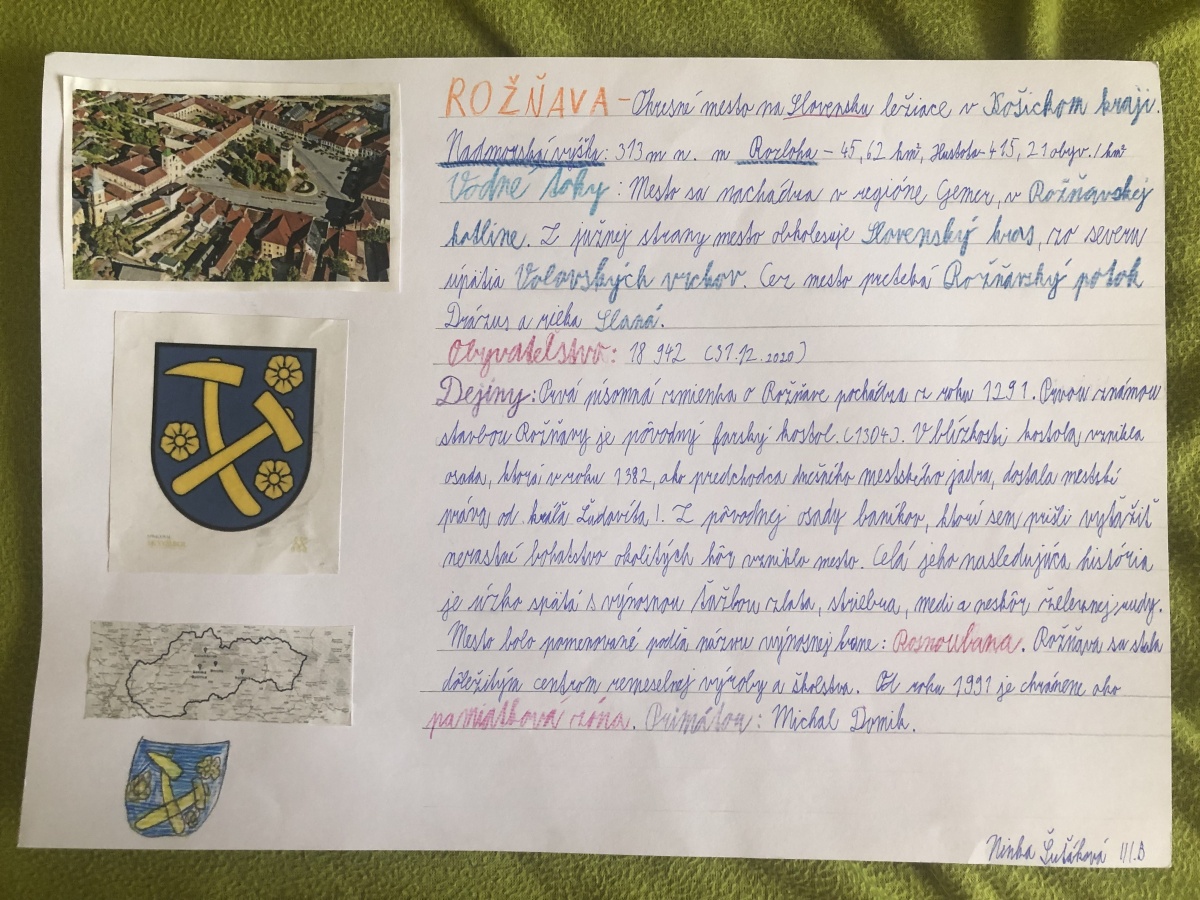 ROŽŇAVA - Okresné mesto na Slovensku ležiace v Košickom kraji.
Nadmorská výška: 313 m n. m Rozloha - 45,62 km², Hustota - 415,21 obyv./km²
Vodné toky: Mesto sa nachádza v regióne Gemer, v Rožňavskej
kotline. Z južnej strany mesto obkolesuje Slovenský kras, zo severu
úpätia Volovských vrchov. Cez mesto preteká Rožňavský potok
Drázus a rieka Slaná.
Obyvateľstvo: 18 942 (31.12.2020)
Dejiny: Prvá písomná zmienka o Rožňave pochádza z roku 1291. Prvou známou
stavbou Rožňavy je pôvodný farský kostol. (1304). V blízkosti kostola vznikla
osada, ktorá v roku 1382, ako predchodca dnešného mestského jadra, dostala mestské
práva od kráľa Ľudovíta I. Z pôvodnej osady baníkov, ktorí sem prišli vyťažiť
nerastné bohatstvo okolitých hôr vzniklo mesto. Celá jeho nasledujúca história
je úzko spätá s výnosnou ťažbou zlata, striebra, medi a neskôr železnej rudy.
Mesto bolo pomenované podľa názvu výnosnej bane: Rosnoubana. Rožňava sa stala
dôležitým centrom remeselnej výroby a školstva. Od roku 1991 je chránene ako
pamiatková zóna. Primátor: Michal Domik.
Ninka Šušáková III.B